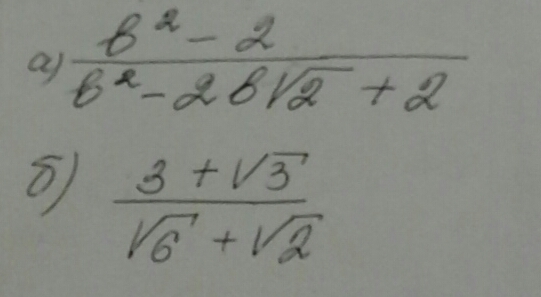 а) (b² - 2) / (b² - 2b√2 + 2)
б) (3 + √3) / (√6 + √2)